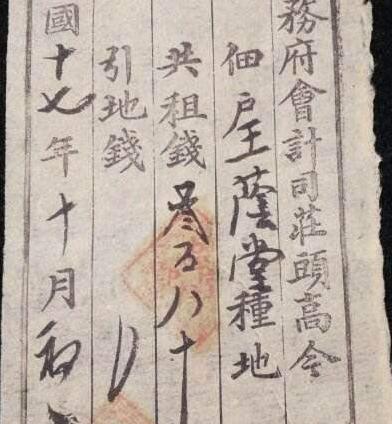 務府會計司莊頭高今
佃戶王蔭堂種地
共租錢叁百八十
引地錢
國十七年十月初